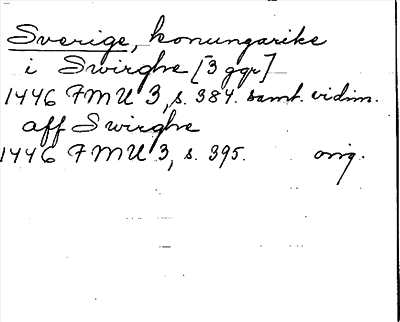 Sverige, konungarike
i Swirghe [3 ggr]
1446 FMU 3, s. 384. samt. vidim.
aff Swirghe
1446 FMU 3, s. 395. orig.